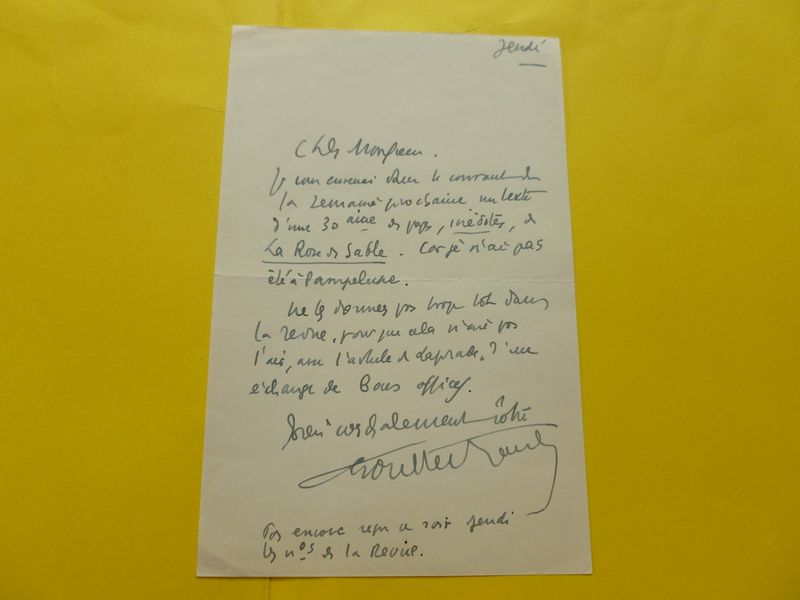 Jeudi
Cher Monsieur.
Je vous enverrai dans le courant de
la semaine prochaine un texte
d'une 30aine de pages, inédites, de
La Rose de Sable. Car je n'ai pas
été à Pampelune.
Ne le donnez pas trop tôt dans
la revue, pour que cela n'ait pas
l'air, avec l'article de Laprade, d'un
échange de bons offices.
Bien cordialement vôtre
Montherlant
Pas encore reçu ce soir jeudi
les nos de la Revue.